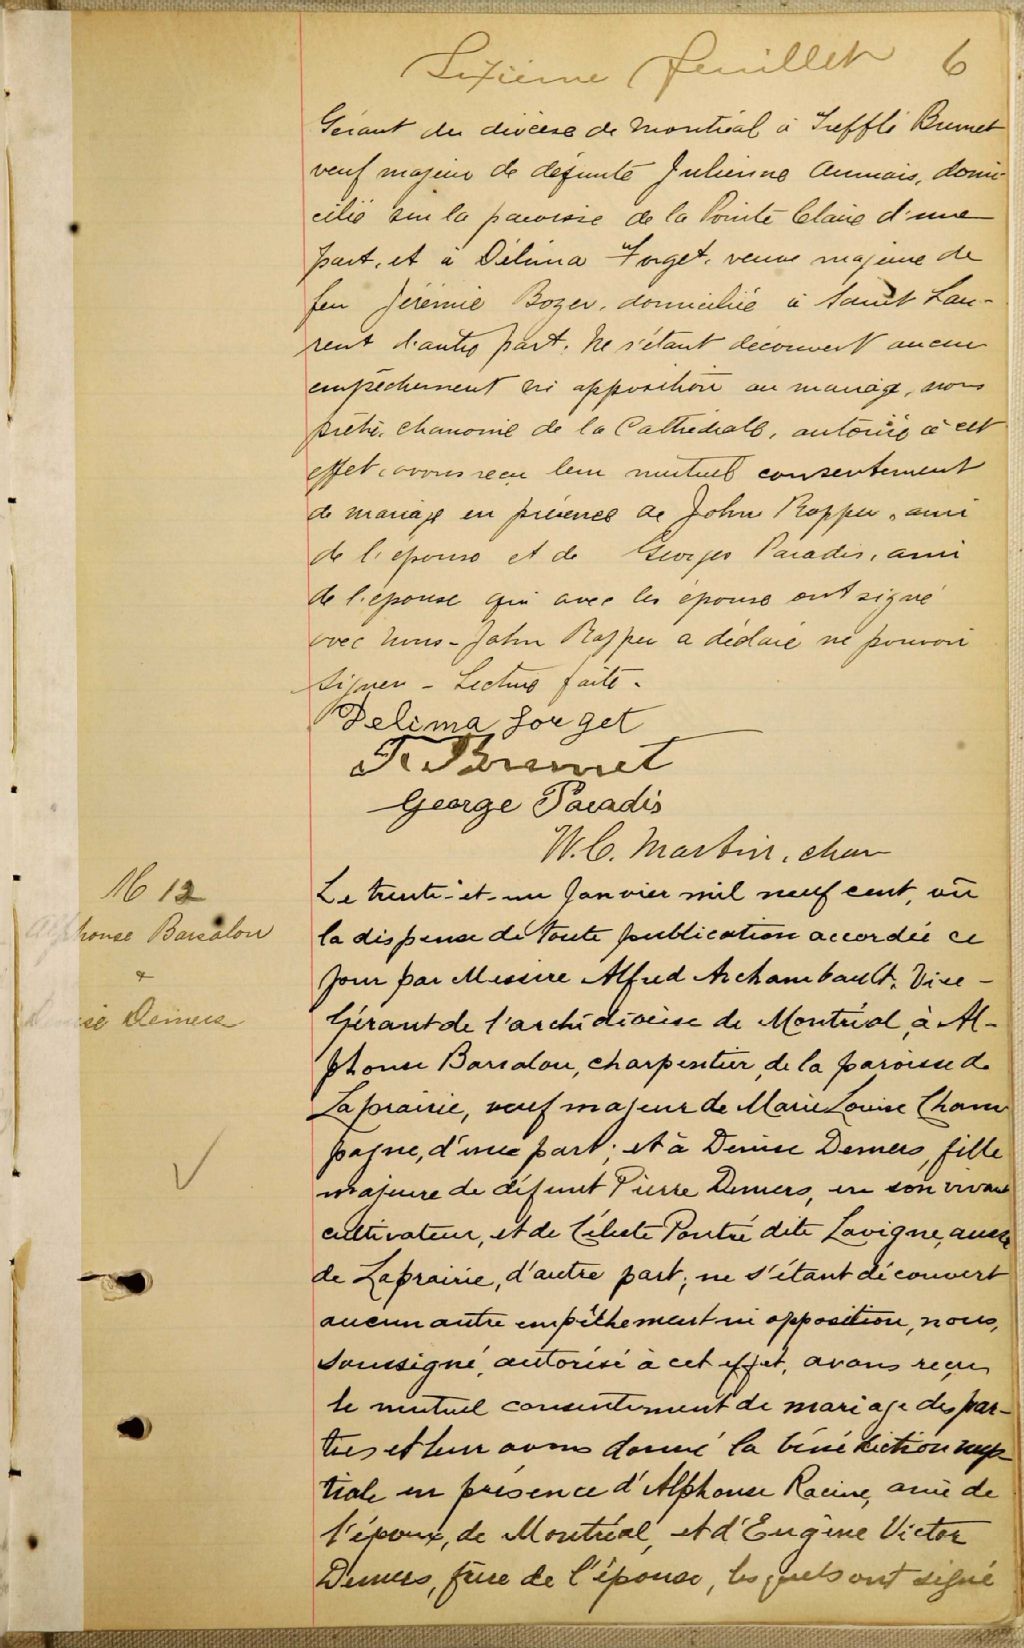 Sixième feuillet 6
Gérant du diocèse de Montréal à Treffle Brunet
veuf majeur de défunte Julienne Aumais, domi-
cilié sur la paroisse de la Pointe Claire d'une
part, et à Délima Forget, veuve majeure de
feu Jérémie Boyer, domiciliée à Saint Lau-
rent d'autre part. Ne s'étant découvert aucun
empêchement ni opposition au mariage, nous
prêtre, chanoine de la Cathédrale, autorisé à cet
effet, avons reçu leur mutuel consentement
de mariage en présence de John Rapper, ami
de l'epoux et de Georges Paradis, ami
de l'epouse qui avec les époux ont signé
avec nous - John Rapper a déclaré ne pouvoir
signer - Lecture faite.
Delima Forget
T. Brunet
George Paradis
W. C. Martin, chan
M 12
Alphonse Barsalou
&
Denise Demers
Le trente-et-un Janvier mil neuf cent, vû
la dispense de toute publication accordée ce
jour par Messire Alfred Archambault, Vice-
Gérant de l'archidiocèse de Montréal, à Al-
phonse Barsalou, charpentier, de la paroisse de
Laprairie, veuf majeur de Marie Louise Cham
pagne, d'une part; et à Denise Demers, fille
majeure de défunt Pierre Demers, en son vivant
cultivateur, et de Céleste Poutré dite Lavigne, aussi
de Laprairie, d'autre part; ne s'étant découvert
aucun autre empêchement ni opposition, nous,
soussigné, autorisé à cet effet, avons reçu
le mutuel consentement de mariage des par-
ties et leur avons donné la bénédiction nup-
tiale en présence d'Alphonse Racine, ami de
l'époux, de Montréal, et d'Eugène Victor
Demers, frère de l'épouse, lesquels ont signé